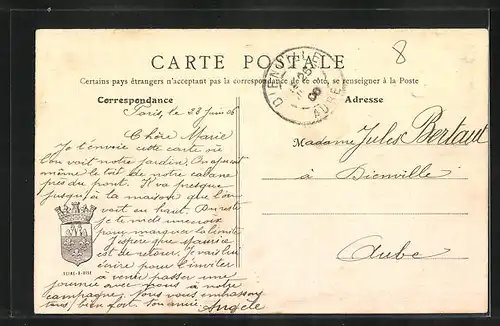 8
CARTE POSTALE
Certains pays étrangers n'acceptant pas la correspondance de ce côté, se renseigner à la Poste
Correspondance
Adresse
DIENVILLE
25
6
06
AUBE
Paris, le 23 juin 06
Chère Marie
Je t'envoie cette carte où
l'on voit notre jardin. On aperçoit
même le toit de notre cabane
près du pont. Il va presque
jusqu'à la maison que l'on
voit en haut. Du reste
je te mets une croix
pour marquer la limite
J'espère que Maurice
est de retour. Je vais lui
écrire pour l'inviter
à venir passer une
journée avec nous à notre
campagne. Nous vous embrassons
tous, bien fort. Ton amie. Angèle
Madame Jules Bertaut
à Dienville
Aube
SEINE-&-OISE